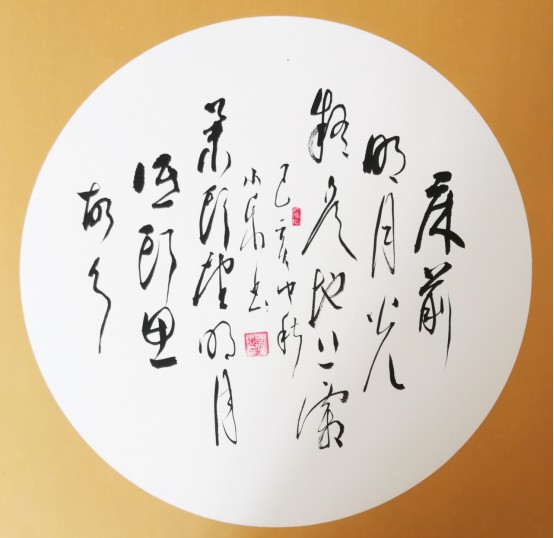 床前
明月光
疑是地上霜
己亥中秋
举頭望明月
低頭思
故乡